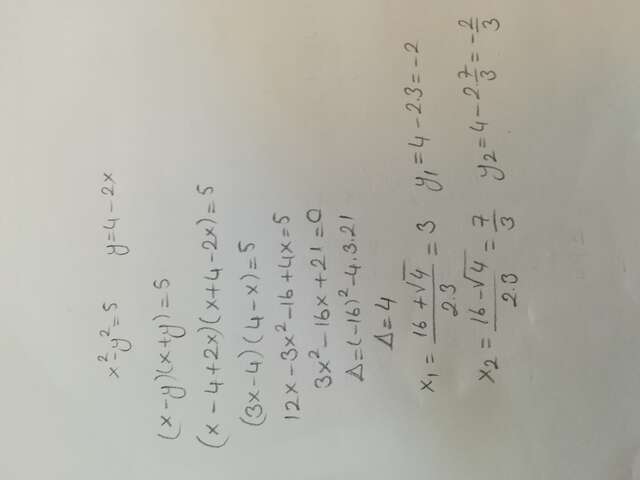 x²-y²=5 y=4-2x
(x-y)(x+y)=5
(x-4+2x)(x+4-2x)=5
(3x-4)(4-x)=5
12x-3x²-16+4x=5
3x²-16x+21=0
Δ=(-16)²-4.3.21
Δ=4
x₁=(16+√4)/2.3=3 y₁=4-2.3=-2
x₂=(16-√4)/2.3=7/3 y₂=4-2.7/3=-2/3